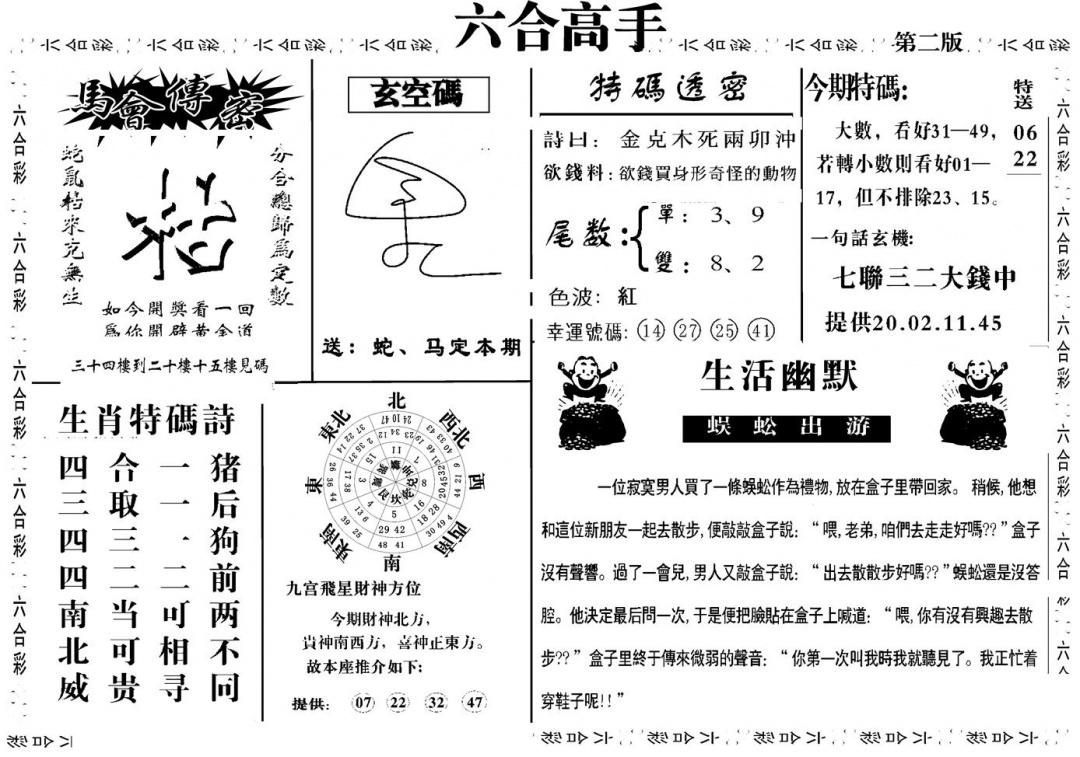 六合高手
第二版
馬會傳密
蛇鼠粘來克無生
粘
分合總歸爲定數
如今開獎看一回
爲你開辟黄金道
三十四樓到二十樓十五樓見碼
玄空碼
送：蛇、马定本期
特碼透密
詩曰：金克木死兩卯沖
欲錢料：欲錢買身形奇怪的動物
尾数：
單：3、9
雙：8、2
色波：紅
幸運號碼：14 27 25 41
今期特碼：
特送
06
22
大數，看好31—49，
若轉小數則看好01—
17，但不排除23、15。
一句話玄機：
七聯三二大錢中
提供20.02.11.45
生肖特碼詩
四合一猪
三取一后
四三一狗
四二二前
南当可两
北可相不
威贵寻同
北
西北
西
西南
南
東南
東
東北
九宫飛星財神方位
今期財神北方，
貴神南西方，喜神正東方。
故本座推介如下：
提供：07 22 32 47
生活幽默
蜈蚣出游
一位寂寞男人買了一條蜈蚣作為禮物，放在盒子里帶回家。稍候，他想
和這位新朋友一起去散步，便敲敲盒子説：“喂，老弟，咱們去走走好嗎??”盒子
沒有聲響。過了一會兒，男人又敲盒子説：“出去散散步好嗎??”蜈蚣還是沒答
腔。他決定最后問一次，于是便把臉貼在盒子上喊道：“喂，你有沒有興趣去散
步??”盒子里終于傳來微弱的聲音：“你第一次叫我時我就聽見了。我正忙着
穿鞋子呢!!”
六合彩